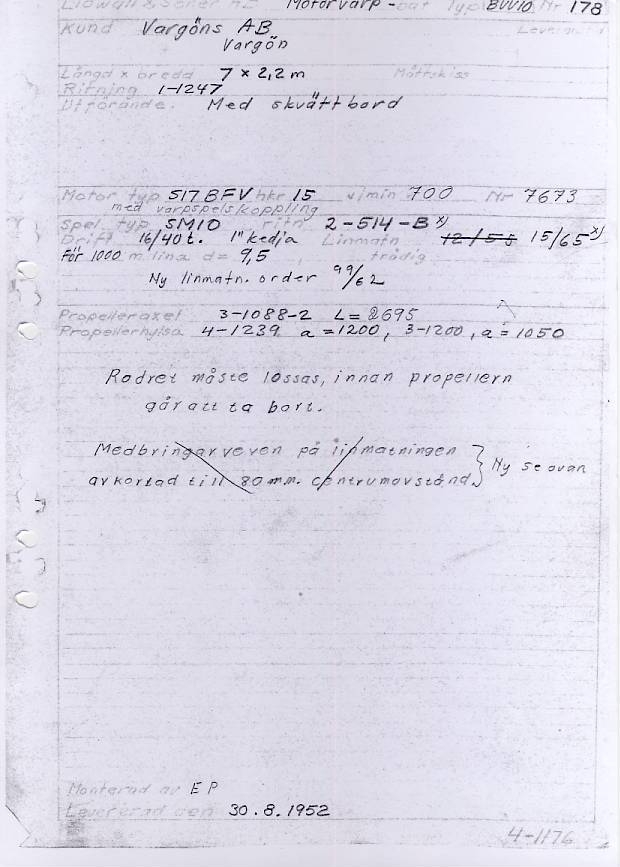 Lidwall & Söner AB Motorvarp-båt Typ BVV10 Nr 178
Kund Vargöns AB Leveranstid
Vargön
Längd x bredd 7 × 2,2 m Måttskiss
Ritning 1-1247
Utförande. Med skvättbord
Motor typ S17 BFV hkr 15 v/min 700 Nr 7673
med varpspelskoppling
Spel typ SM10 ritn 2-514-B x)
Drift 16/40 t. 1" kedja Linmatn 12/55 15/65 x)
För 1000 m lina d= 9,5 , trådig
Ny linmatn. order 99/62
Propelleraxel 3-1088-2 L=2695
Propellerhylsa 4-1239 a=1200, 3-1200, a=1050
Rodret måste lossas, innan propellern
går att ta bort.
Medbringarveven på linmatningen
avkortad till 80 mm. centrumavstånd. } Ny se ovan
Monterad av EP
Levererad den 30.8.1952
4-1176